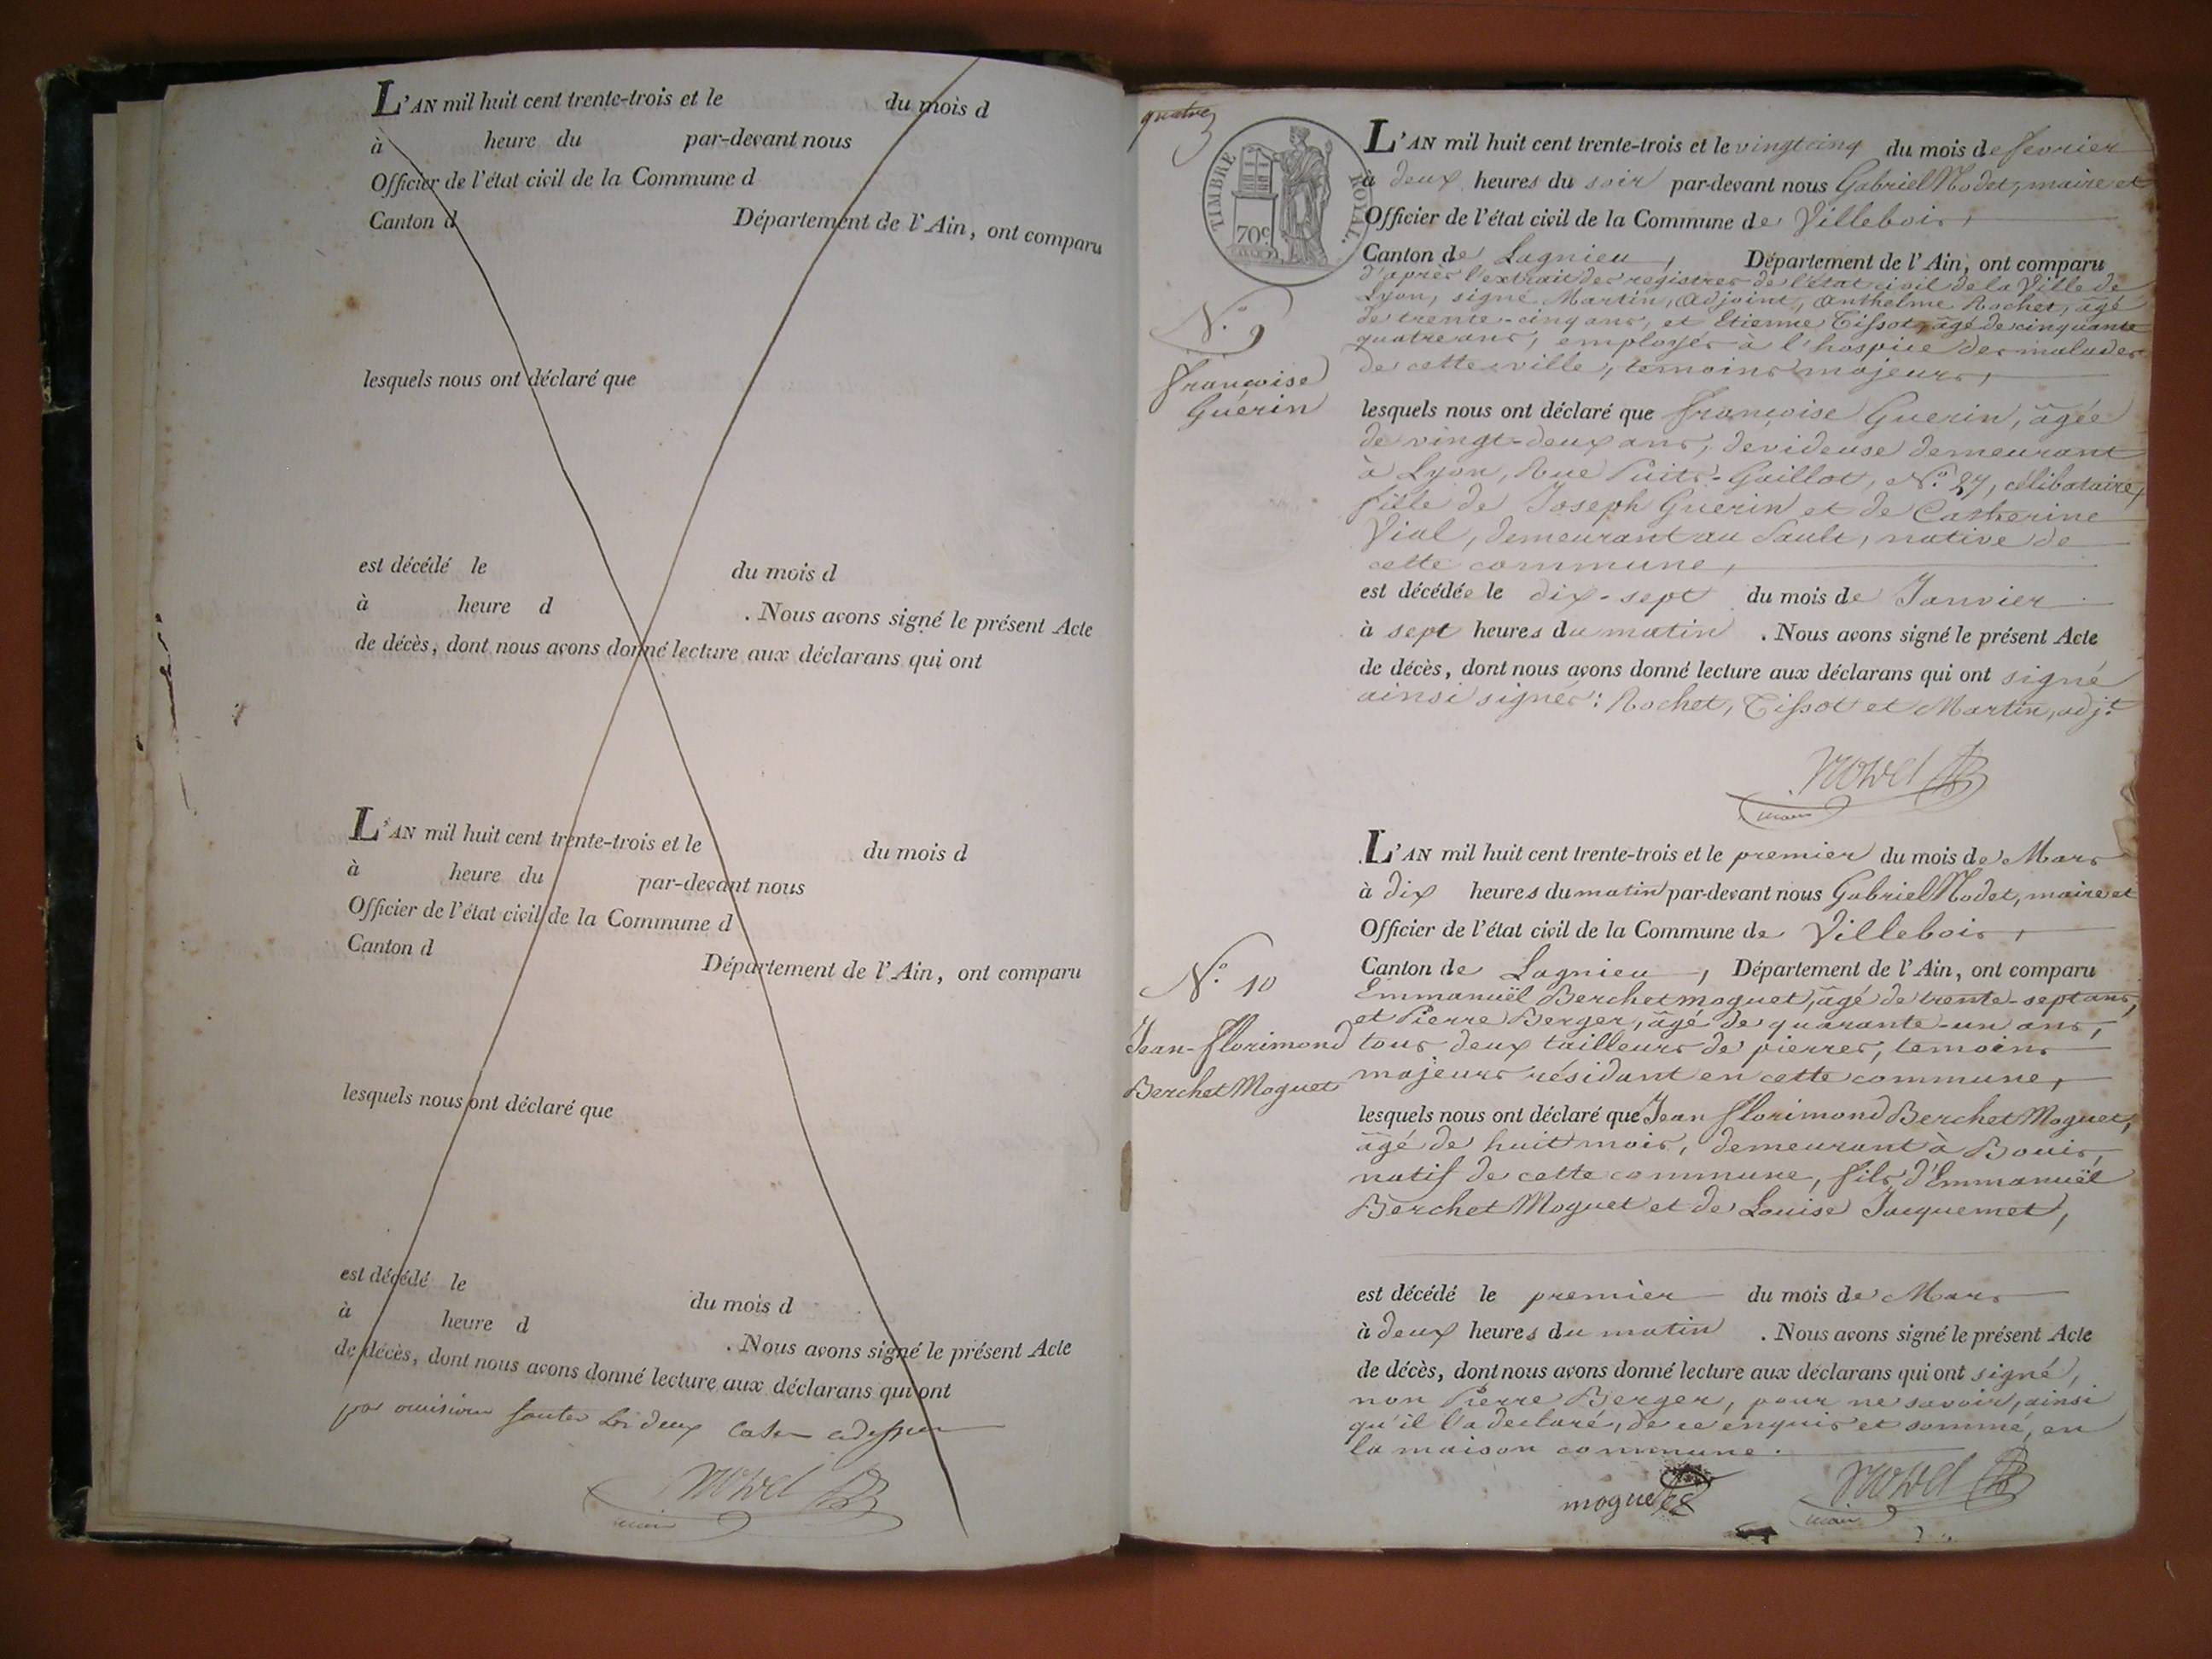 L'AN mil huit cent trente-trois et le du mois d
à heure du par-devant nous
Officier de l'état civil de la Commune d
Canton d Département de l'Ain, ont comparu
lesquels nous ont déclaré que
est décédé le du mois d
à heure d . Nous avons signé le présent Acte
de décès, dont nous avons donné lecture aux déclarans qui ont
L'AN mil huit cent trente-trois et le du mois d
à heure du par-devant nous
Officier de l'état civil de la Commune d
Canton d Département de l'Ain, ont comparu
lesquels nous ont déclaré que
est décédé le du mois d
à heure d . Nous avons signé le présent Acte
de décès, dont nous avons donné lecture aux déclarans qui ont
par omission deux
maire
quatre
TIMBRE ROYAL.
70c
N.o 9
françoise
Guérin
L'AN mil huit cent trente-trois et le vingt cinq du mois de fevrier
à deux heures du soir par-devant nous Gabriel Nodet, maire et
Officier de l'état civil de la Commune de Villebois,
Canton de Lagnieu, Département de l'Ain, ont comparu
d'après l'extrait des registres de l'état civil de la Ville de
Lyon, signé Martin, adjoint, Anthelme Rochet, âgé
de trente-cinq ans, et Etienne Tissot, âgé de cinquante
quatre ans, employés à l'hospice des malades
de cette ville, temoins majeurs,
lesquels nous ont déclaré que françoise Guerin, âgée
de vingt-deux ans, devideuse demeurant
à Lyon, Rue Puits-Gaillot, N.o 27, célibataire,
fille de Joseph Guerin et de Catherine
Vial, demeurant au Sault, native de
cette commune,
est décédée le dix-sept du mois de Janvier
à sept heures du matin . Nous avons signé le présent Acte
de décès, dont nous avons donné lecture aux déclarans qui ont signé
ainsi signés: Rochet, Tissot et Martin, adj.t
Nodet
maire
N.o 10
Jean-florimond
Berchet Moguet
L'AN mil huit cent trente-trois et le premier du mois de Mars
à dix heures du matin par-devant nous Gabriel Nodet, maire et
Officier de l'état civil de la Commune de Villebois,
Canton de Lagnieu, Département de l'Ain, ont comparu
Emmanuël Berchet moguet, âgé de trente-sept ans,
et Pierre Berger, âgé de quarante-un ans,
tous deux tailleurs de pierres, temoins
majeurs résidant en cette commune,
lesquels nous ont déclaré que Jean florimond Berchet Moguet,
âgé de huit mois, demeurant à Bouis,
natif de cette commune, fils d'Emmanuël
Berchet Moguet et de Louise Jacquemet,
est décédé le premier du mois de Mars
à deux heures du matin . Nous avons signé le présent Acte
de décès, dont nous avons donné lecture aux déclarans qui ont signé,
non Pierre Berger, pour ne savoir, ainsi
qu'il l'a declaré, de ce enquis et sommé, en
la maison commune.
moguet Nodet
maire